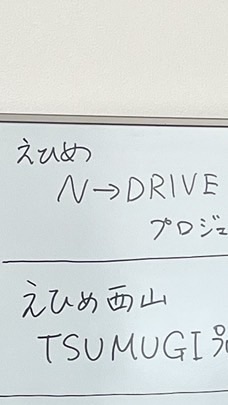 えひめ
N→DRIVE
プロジェ
えひめ西山
TSUMUGI